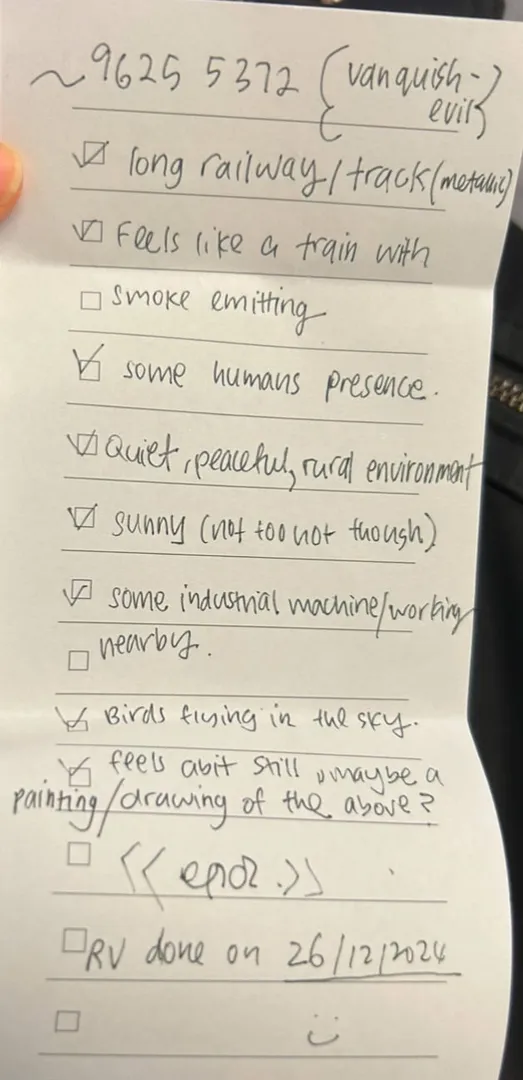 ~9625 5372 {vanquish-
evil}
long railway/track (metallic)
Feels like a train with
smoke emitting
some humans presence.
Quiet, peaceful, rural environment
sunny (not too hot though)
some industrial machine/working
nearby.
Birds flying in the sky.
feels abit still, maybe a
painting/drawing of the above?
<< end. >>
RV done on 26/12/2024
:)